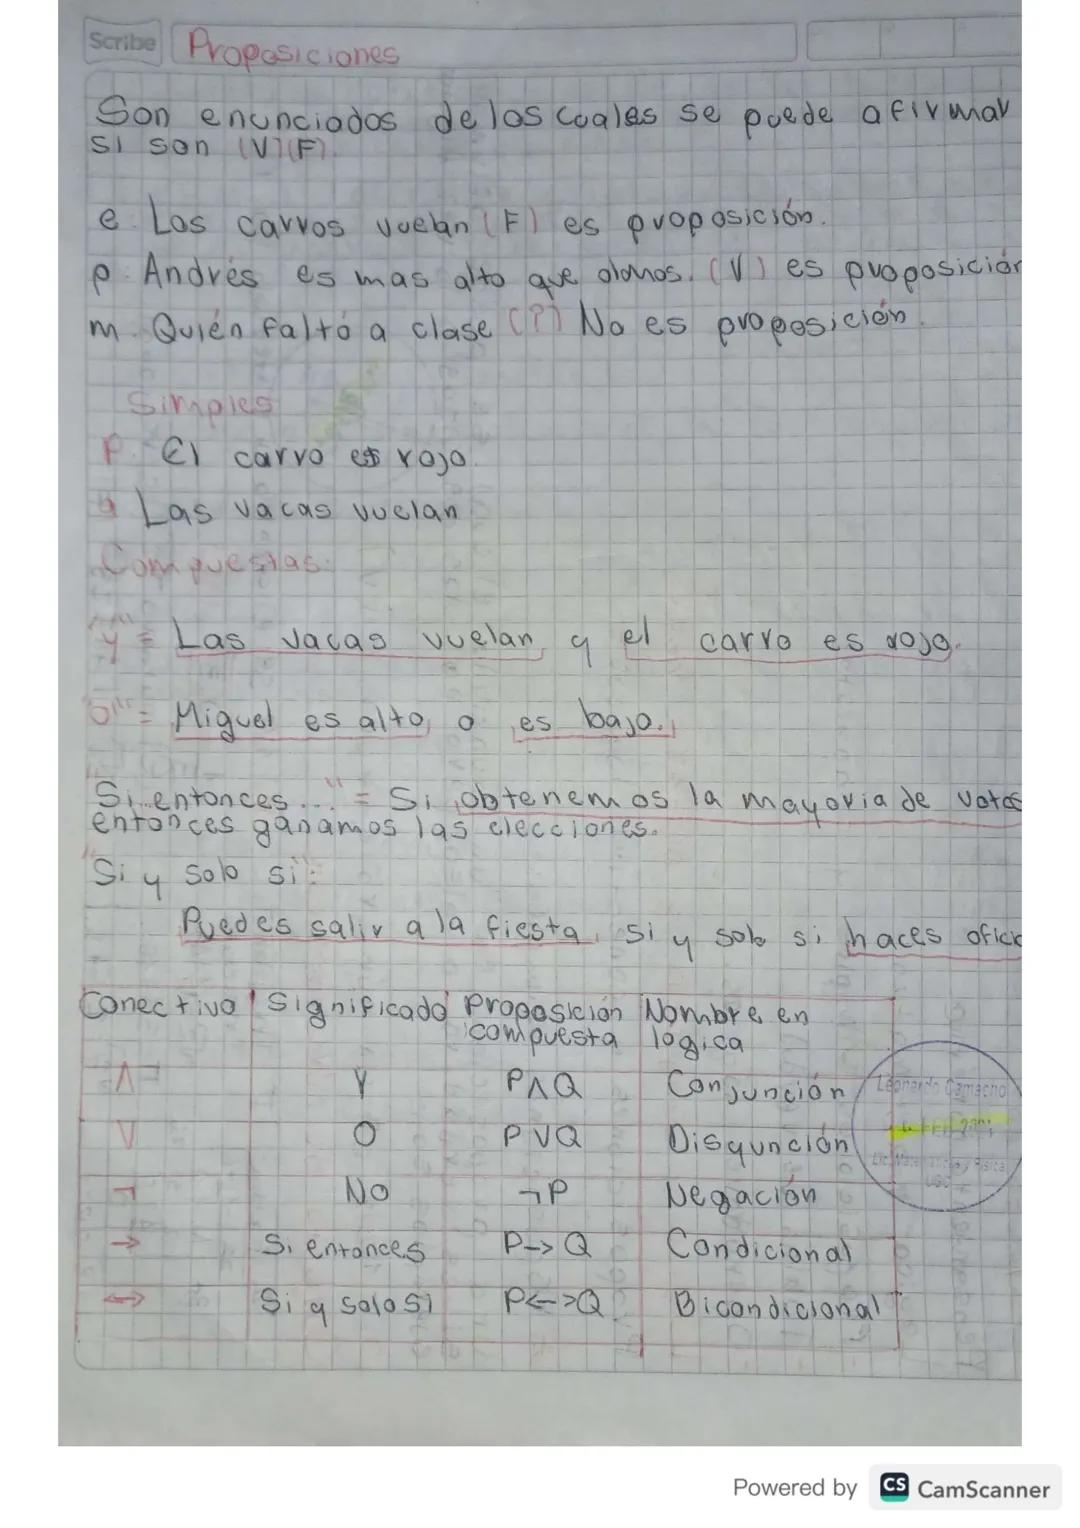 Scribe Proposiciones
Son enunciados de los cuales se puede afirmar
si son (V)(F).
e. Los carros vuelan (F) es proposición.
p. Andrés es mas alto que (V) es proposición
m. Quién faltó a clase (?) No es proposición.
Simples
P. El carro es rojo.
q Las vacas vuelan
Compuestas:
"y" = Las vacas vuelan y el carro es rojo.
"o" = Miguel es alto, o es bajo.
"Si..entonces..." = Si obtenemos la mayoria de votos
entonces ganamos las elecciones.
"Si y solo si":
Puedes salir a la fiesta, si y solo si haces
Conectivo Significado Proposición Nombre en
compuesta logica
∧ Y P∧Q Conjunción
∨ O P∨Q Disyunción
¬ No ¬P Negación
→ Si entonces P->Q Condicional
↔ Si y solo si P<->Q Bicondicional
Leonardo Camacho
Powered by CS CamScanner